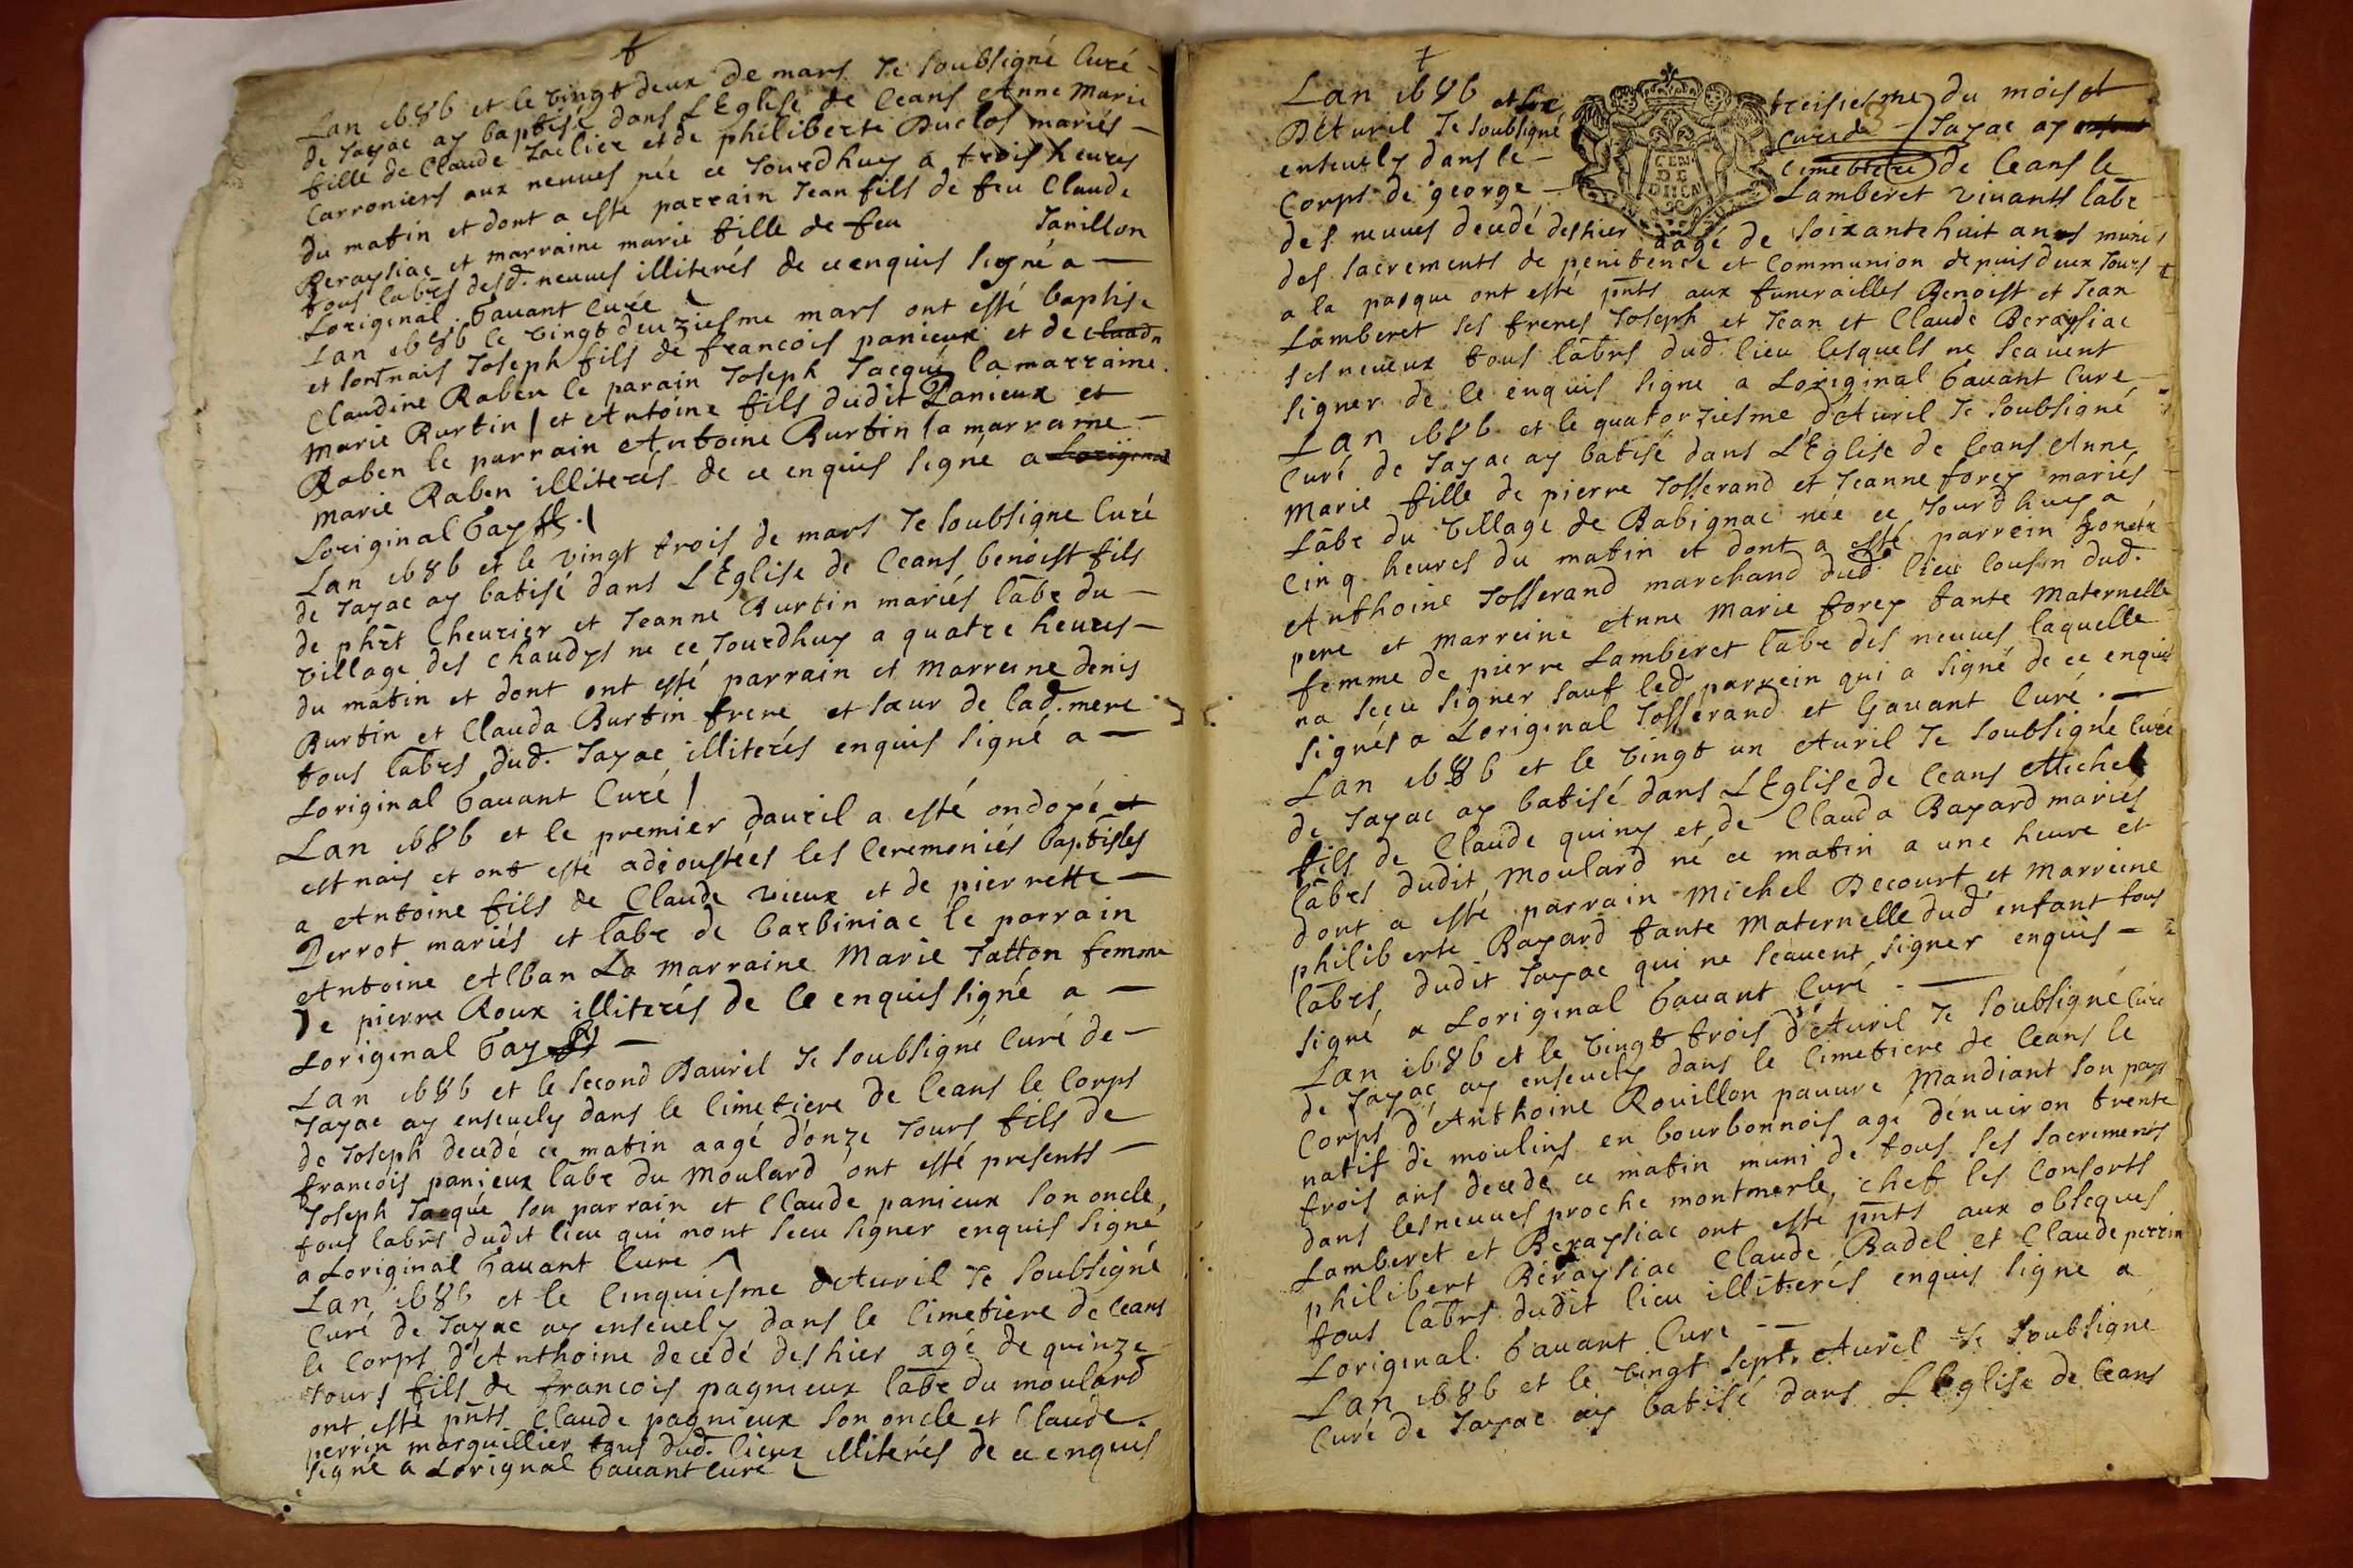 Lan 1686 et le vingt deux de mars Je soubsigné Curé
de Jayac ay baptisé dans LEglise de Ceans Anne Marie
fille de Claude et de philiberte Duclos mariés
Carroniers aux neuves née ce Jourdhuy a trois heures
du matin et dont a esté parrain Jean fils de feu Claude
Beraysiac et marraine marie fille de feu Janillon
tous labrs desd. neuves illiterés de ce enquis signé a
Loriginal Gavant Curé
Lan 1686 le vingt deuziesme mars ont esté baptise
et sont nais Joseph fils de francois panieux et de
Claudine Raben le parain Joseph Jacqué la marraine
Marie Burtin et Antoine fils dudit Panieux et
Raben le parrain Antoine Burtin la marraine
Marie Raben illiterés de ce enquis signé a Loriginal
Loriginal Gay
Lan 1686 et le vingt trois de mars Je soubsigne Curé
de Jayac ay batisé dans LEglise de Ceans benoist fils
de phrt Cheurier et Jeanne Burtin mariés labr du
village des Chaudys ne ce Jourdhuy a quatre heures
du matin et dont ont esté parrain et marreine denis
Burtin et Clauda Burtin frere et sœur de lad. mere
tous labrs dud. Jayac illiterés enquis signé a
Loriginal Gavant Curé
Lan 1686 et le premier davril a esté ondoyé et
est nais et ont esté adioustées les Ceremoniés baptisles
a Antoine fils de Claude vieux et de pierrette
Perrot mariés et labr de barbiniac le parrain
Antoine Alban La marraine Marie Jatton femme
De pierre Roux illiterés de Ce enquis signé a
Loriginal Gay
Lan 1686 et le second Davril Je soubsigné Curé de
Jayac ay ensevely dans le Cimetiere de Ceans le Corps
de Joseph decedé ce matin aagé donze Jours fils de
francois panieux labr du Moulard ont esté presents
Joseph Jacqué son parrain et Claude panieux son oncle
tous labrs dudit lieu qui nont sceu signer enquis signé
a Loriginal Gavant Cure
Lan 1686 et le Cinquiesme dAvril Je soubsigné
Curé de Jayac ay ensevely dans le Cimetiere de Ceans
le Corps d'Anthoine decedé deshier agé de quinze
Jours fils de francois pagnieux labr du moulard
ont esté pnts Claude pagnieux son oncle et Claude
perrin marguillier tous dud. lieux illiterés de ce enquis
signé a Lorignal Gavant Curé
Lan 1686 treisiesme du mois
DAvril Je soubsigné Curé de Jayac ay
ensevely dans le Cimetiere de Ceans le
Corps de george Lamberet vivants labr
des neuves decedé deshier aagé de soixante huit ans munis
des sacrements de penitence et Communion depuis deux Jours
a la pasque ont esté pnts aux funerailles Benoist et Jean
Lamberet ses freres Joseph et Jean et Claude Beraysiac
ses neveux tous labrs dud lieu lesquels ne scavent
signer de Ce enquis signe a Loriginal Gavant Cure
Lan 1686 et le quatorziesme dAvril Je soubsigné
Curé de Jayac ay batisé dans LEglise de Ceans Anne
Marie fille de pierre Josserand et Jeanne forey mariés
labr du village de Babignac née ce Jourdhuy a
Cinq heures du matin et dont a esté parrein honete
Anthoine Josserand marchand dud. lieu Cousin dud.
pere et marreine Anne Marie forey tante Maternelle
femme de pierre Lamberet labr des neuves laquelle
na sceu signer sauf led. parrein qui a signé de ce enquis
signés a Loriginal Josserand et Gavant Curé.
Lan 1686 et le vingt un Avril Je soubsigné Curé
de Jayac ay batisé dans LEglise de Ceans Michel
fils de Claude quiny et de Clauda Bayard mariés
labrs dudit Moulard né ce matin a une heure et
dont a esté parrain Michel Decourt et Marreine
philiberte Bayard tante Maternelle dud enfant tous
labrs dudit Jayac qui ne scavent signer enquis
signé a Loriginal Gavant Curé.
Lan 1686 et le vingt trois dAvril Je soubsigné Curé
de Jayac ay ensevely dans le Cimetiere de Ceans le
Corps d'Anthoine Rouillon pauvre Mandiant son pays
natif de moulins en bourbonnois agé denviron trente
trois ans decedé ce matin muni de tous ses sacrements
dans les neuves proche montmerle, chef les Consorts
Lamberet et Beraysiac ont esté pnts aux obseques
philibert Beraysiac Claude Badel et Claude perrin
tous labrs dudit lieu illiterés enquis signe a
Loriginal. Gavant Cure
Lan 1686 et le vingt sept Avril Je soubsigné
Curé de Jayac ay batisé dans LEglise de Ceans